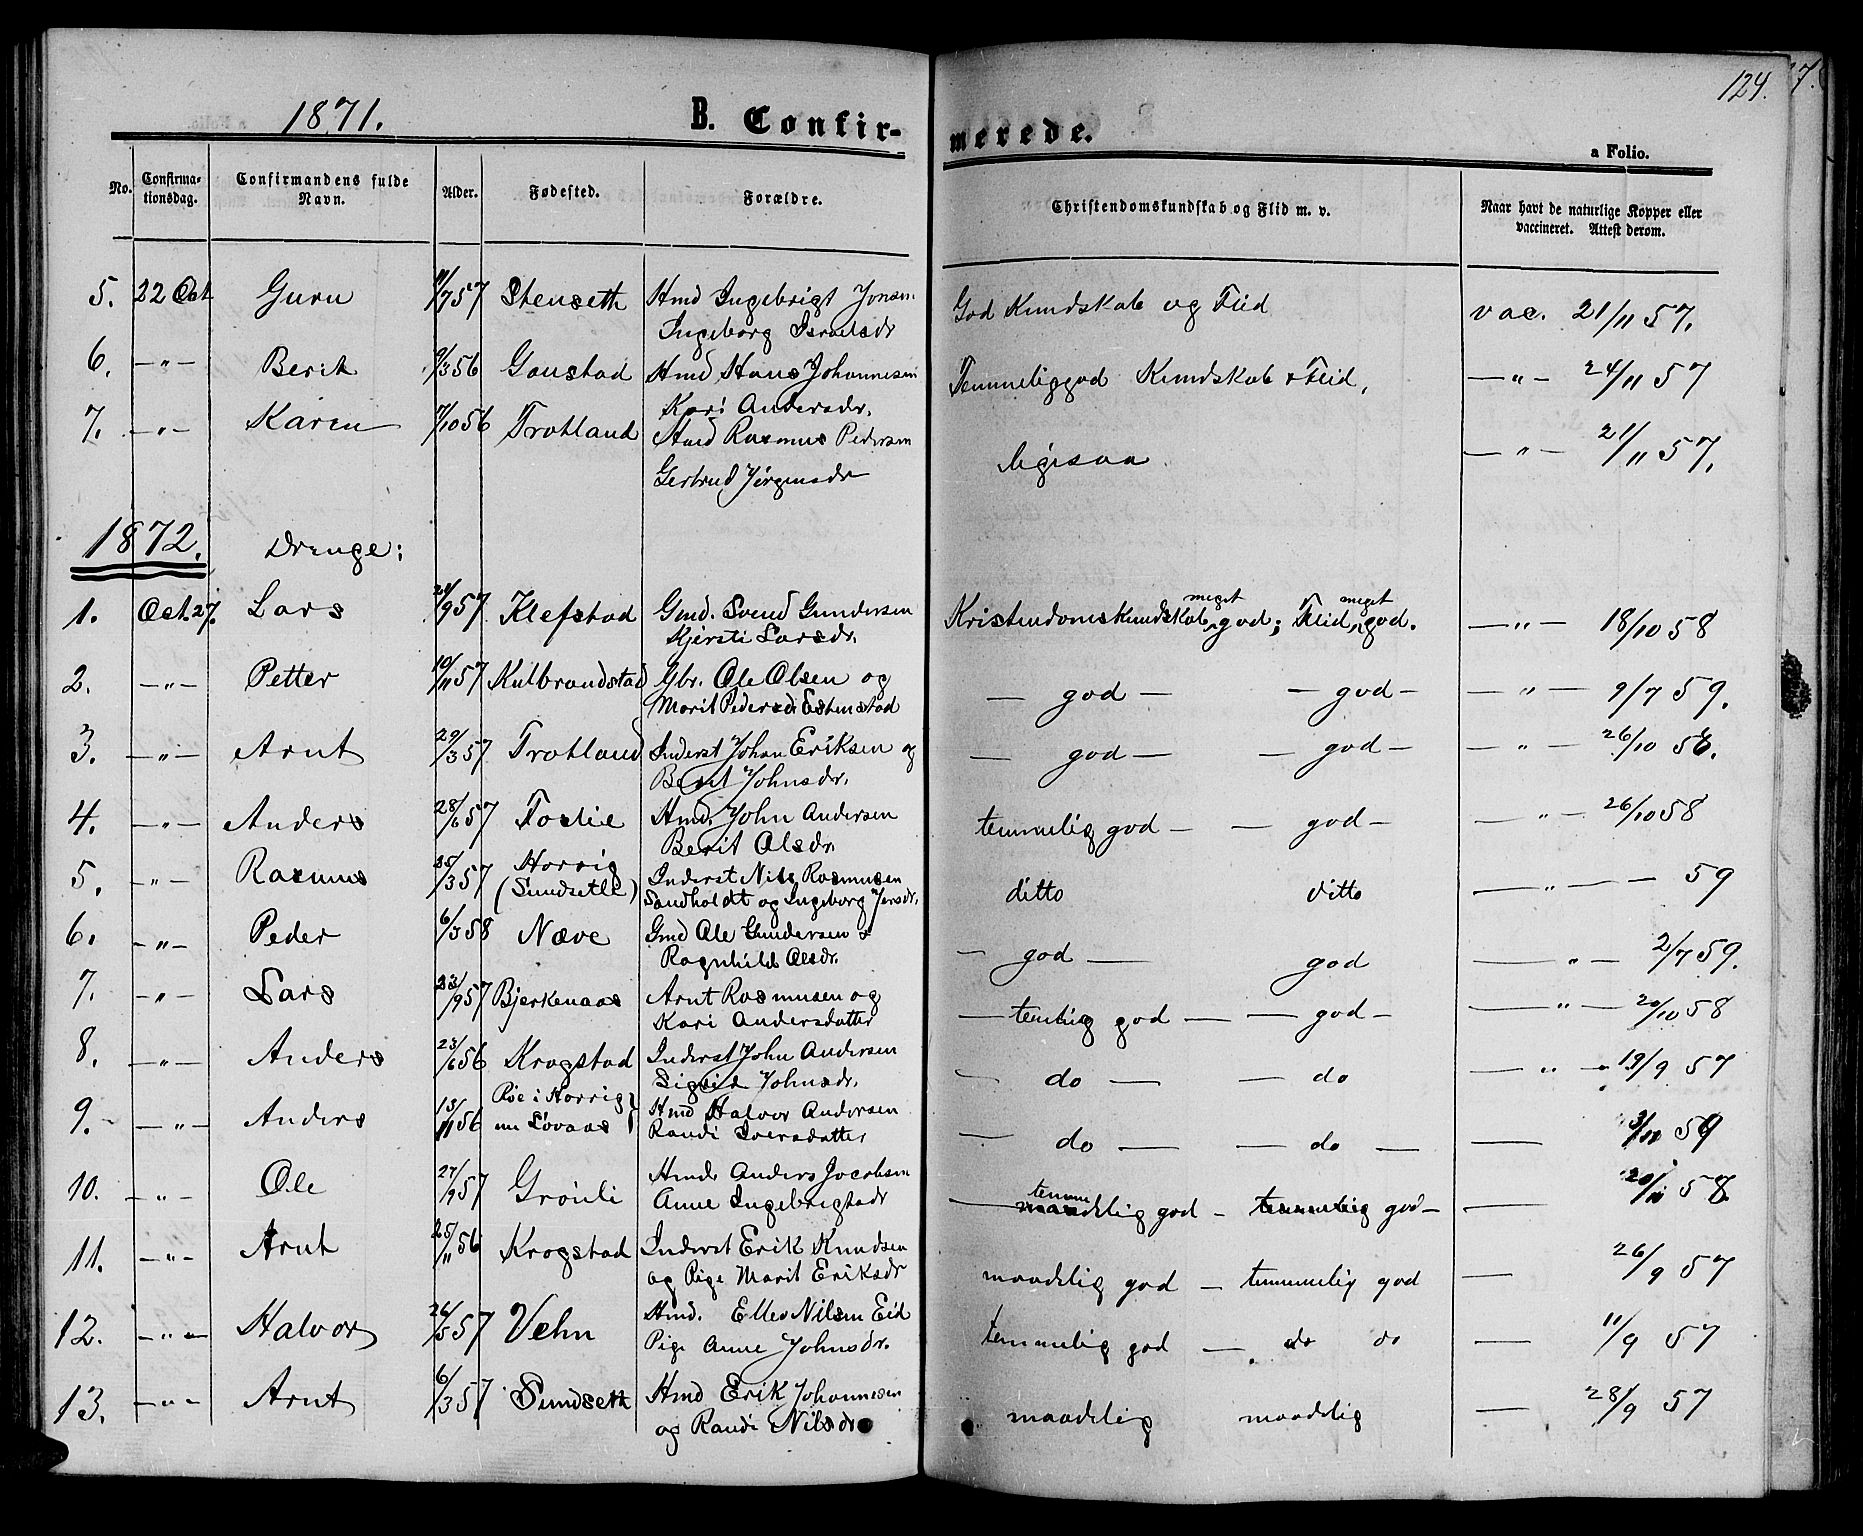 1871. B. Confir- merede. 124.
a Folio.
No. Confirma- tionsdag. Confirmandens fulde Navn. Alder. Fødested. Forældre. Christendomskundskab og Flid m. v. Naar havt de naturlige Kopper eller vaccineret. Attest derom.
5. 22 Oct Guru 9/7 57 Stenseth Hmd Ingebrigt Jonsen God Kundskab og Flid vac. 21/11 57.
Ingeborg Israelsdr
6. —"— Berit 9/3 56 Gaustad Hmd Hans Johannesen Temmelig god Kundskab & Flid, —"— 24/11 57
Kari Andersdr.
7. —"— Karen 7/10 56 Trotland Hmd Rasmus Pedersen ligesaa —"— 21/11 57.
Gertrud Jørgensdr
1872. Drenge:
1. Oct. 27. Lars 9 57 Klefstad Gmd. Svend Gundersen Kristendomskundskab meget god; Flid meget god. —"— 18/10 58
Kjersti Larsdr.
2. —"— Petter 10/11 57 Kulbrandstad Gbr. Ole Olsen og — god — — god — —"— 9/7 59.
Marit Pedersdr Estenstad
3. —"— Arnt 29/3 57 Trotland Inderst Johan Eriksen og — god — — god — —"— 26/10 58.
Berit Johnsdr.
4. —"— Anders 28/6 57 Foslie Hmd. John Andersen temmelig god — — god — —"— 26/10 58
Berit Olsdr.
5. —"— Rasmus 25/3 57 Horrig Inderst Nils Rasmusen ditto ditto —"— 59
(Sundsetle) Sandholdt og Ingeborg Jensdr.
6. —"— Peder 6/3 58 Næve Gmd Ole Gundersen & — god — god —"— 2/7 59.
Ragnhild Olsdr.
7. —"— Lars 23/9 57 Bjerkenaas Arnt Rasmusen og — temlig god — — god — —"— 20/10 58
Kari Andersdatter
8. —"— Anders 23/6 56 Krogstad Inderst John Andersen — do — — do —"— 19/9 57
Sigrid Johnsdr.
9. —"— Anders 13/11 56 Pve i Horrig Hmd Halvor Andersen — do — — do — — 3/10 59
nu Lovaas Randi Iversdatter
10. —"— Ole 27/9 57 Grønli Hmd. Anders Jacobsen — temmelig god — temmelig god — — 58
Anne Ingebrigtsdr
11. —"— Arnt 25/11 56 Krogstad Inderst Erik Knudsen maadelig god — temmelig god — 26/9 57
og Pige Marit Eriksdr
12. —"— Halvor 26/5 57 Vehn Hmd. Ellev Nilsen Eid temmelig god — do do — 11/9 57
Pige Anne Johnsdr.
13. —"— Arnt 6/3 57 Sundseth Hmd Erik Johannesen maadelig maadelig — 28/9 57
og Randi Nilsdr